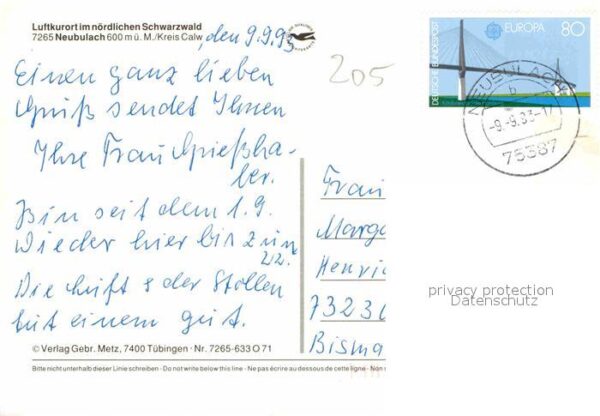 Luftkurort im nördlichen Schwarzwald
7265 Neubulach 600 m ü. M./Kreis Calw
, den 9.9.93
205
Einen ganz lieben
Gruß sendet Ihnen
Ihre Frau Spießha-
ber.
Bin seit dem 1.9.
wieder hier bis zum
22.
Die Luft & der Stollen
tut einem gut.
© Verlag Gebr. Metz, 7400 Tübingen · Nr. 7265-633 O 71
Bitte nicht unterhalb dieser Linie schreiben - Do not write below this line - Ne pas écrire au dessous de cette ligne - Non
DEUTSCHE BUNDESPOST
EUROPA
80
NEUBULACH
b
-9.-9.93-17
75387
Frau
Marga
Henri
73230
Bisma
privacy protection
Datenschutz